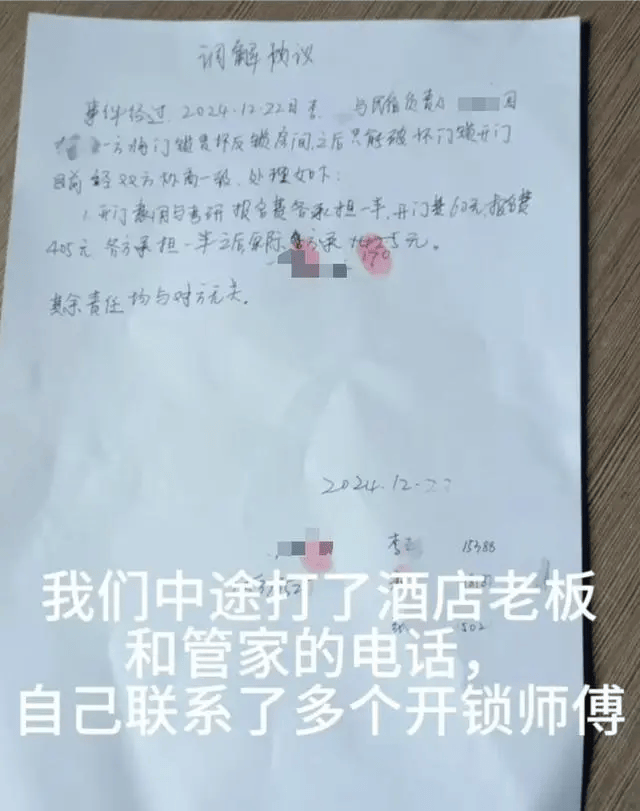 调解协议
事件经过: 2024.12.22日 与民宿负责人 因
一方将门锁损坏反锁房间,之后只能破坏门锁开门
目前经双方协商一致,处理如下:
1.开门费用与考研报名费各承担一半,开门费60元,报名费
405元 各方承担一半之后实际 方承
170
其余责任均与对方无关。
2024.12.
李 15388
502
我们中途打了酒店老板
和管家的电话,
自己联系了多个开锁师傅